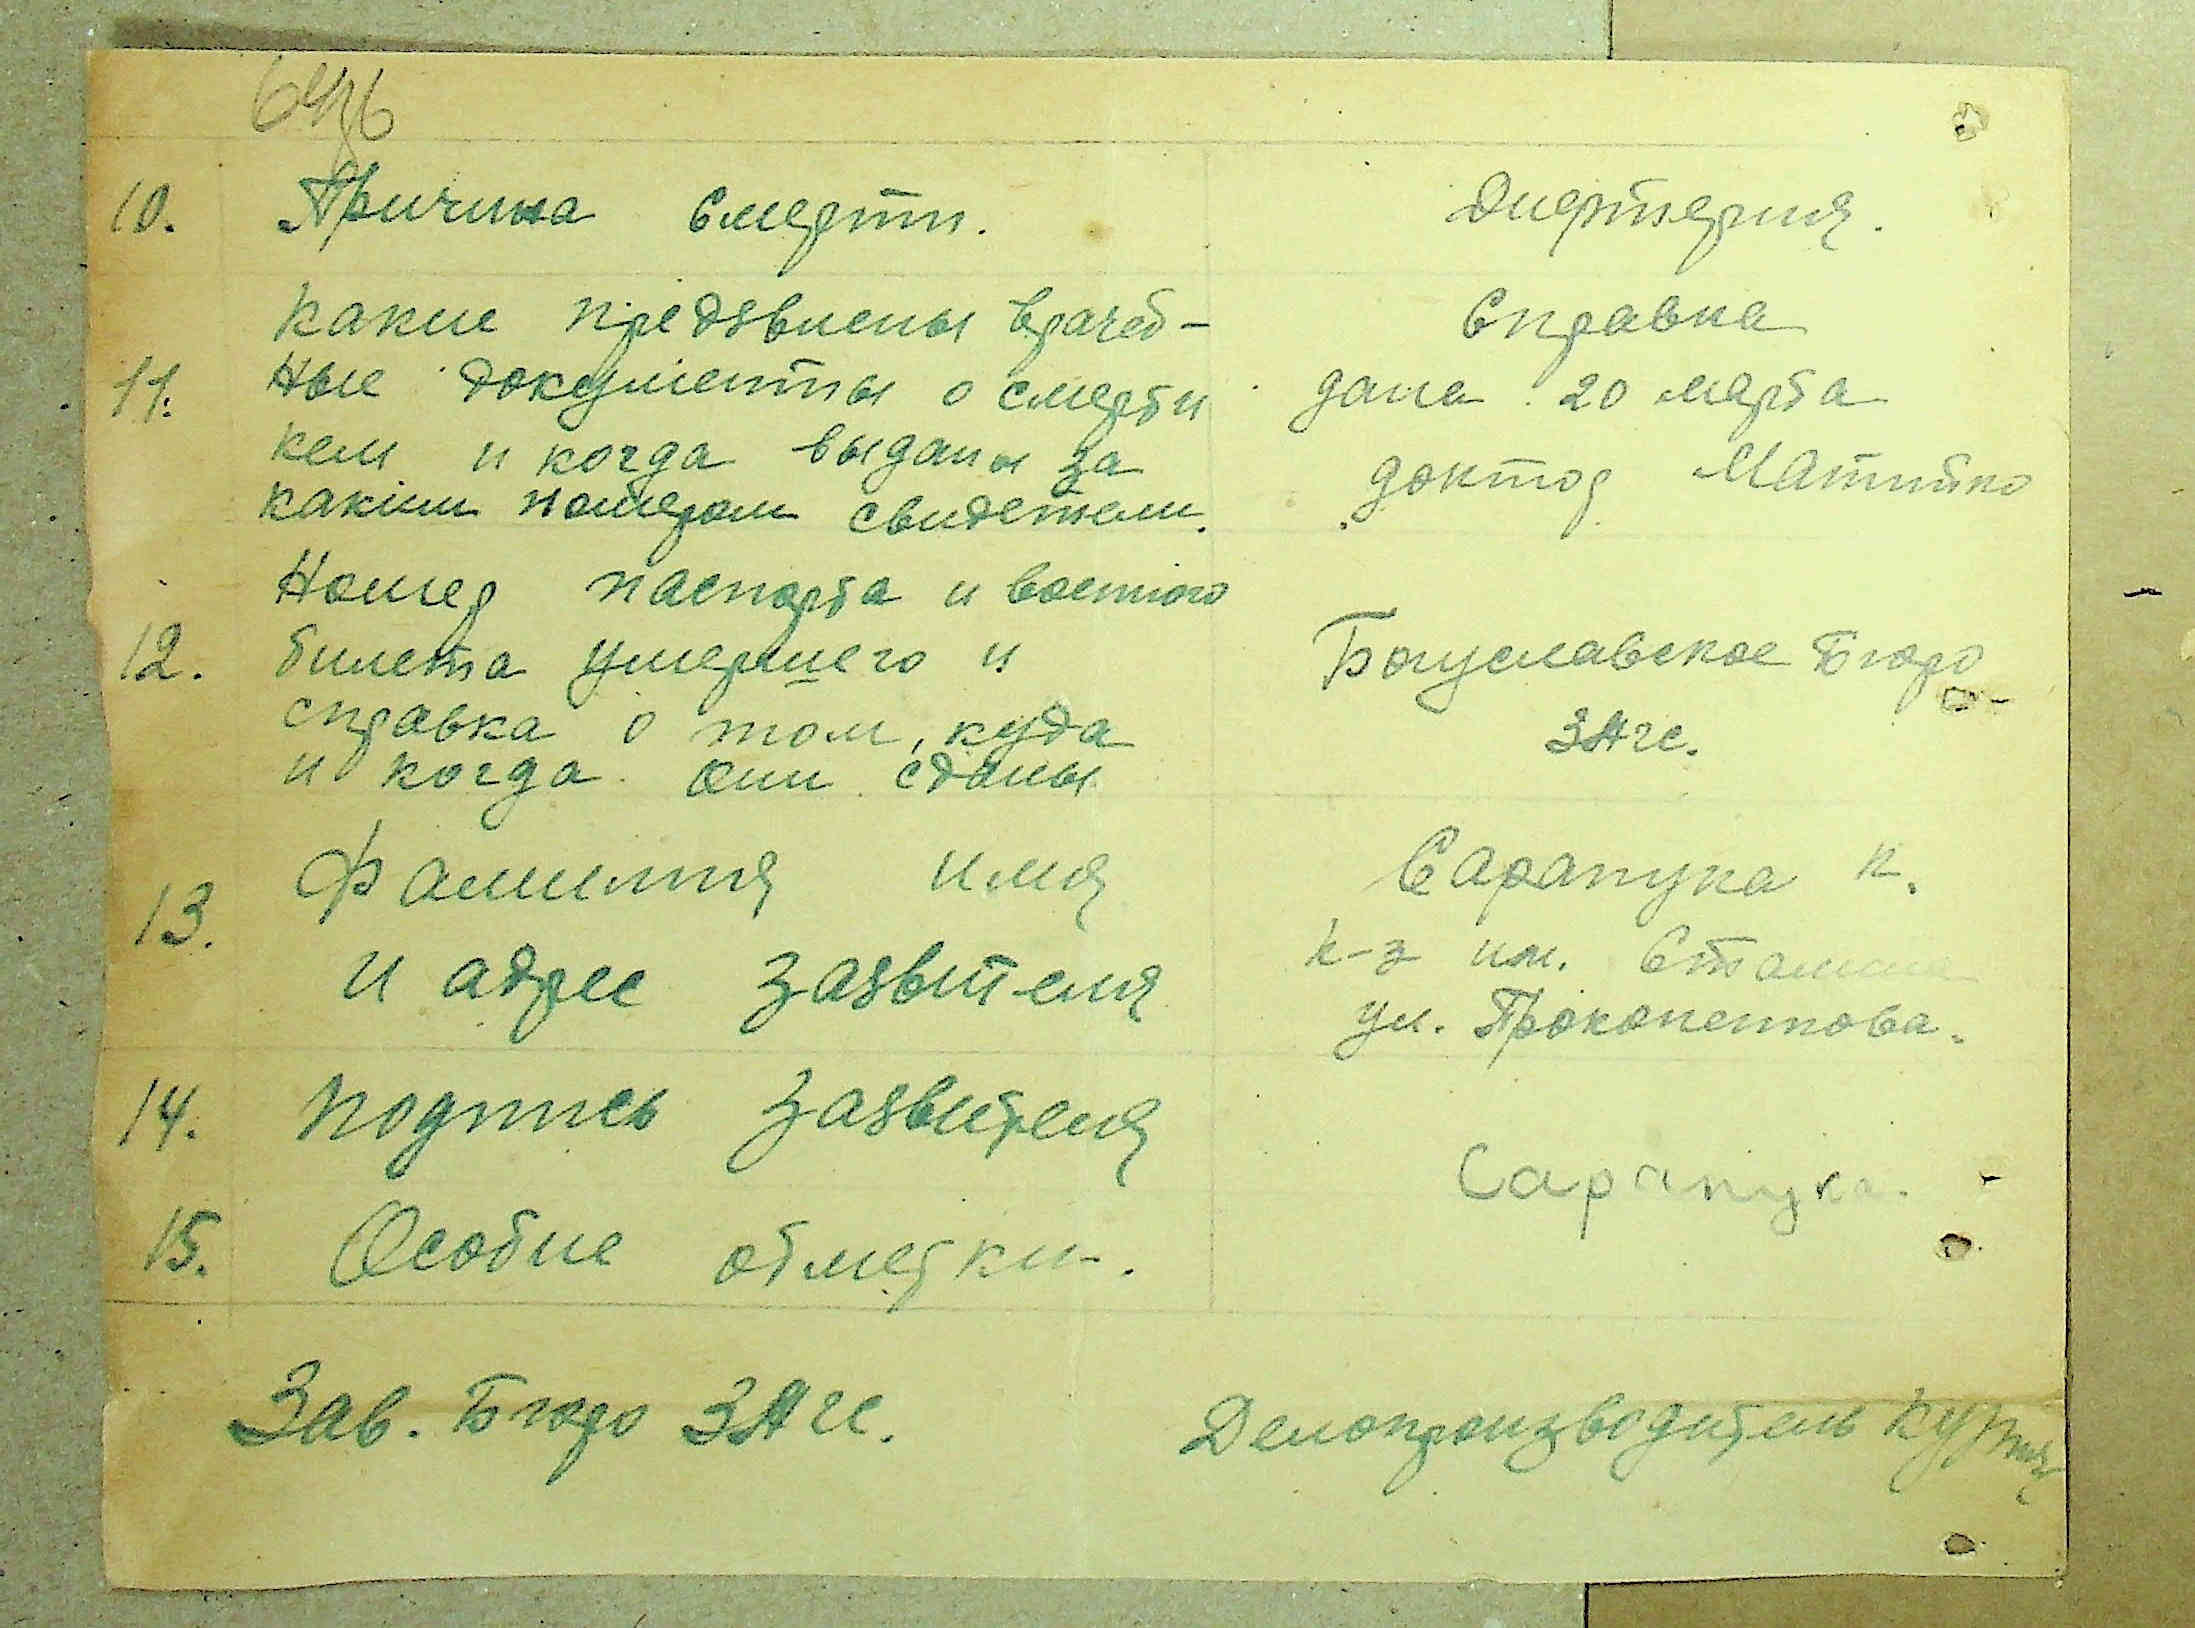 10. Причина смерти. Дифтерия.
Какие предявлены врачеб- Справка
11. ные документы о смерти дана 20 марта
кем и когда выданы за доктор Матийко
каким номером свидетели.
Номер паспорта и военного
12. билета умершего и Богуславское Бюро
справка о том, куда ЗАгс.
и когда они сданы
13. Фамилия имя Сарапука К.
и адрес заявителя к-з им. Сталина
ул. Прокопенкова.
14. Подпись заявителя Сарапука.
15. Особие отметки.
Зав. Бюро ЗАгс. Делопроизводитель